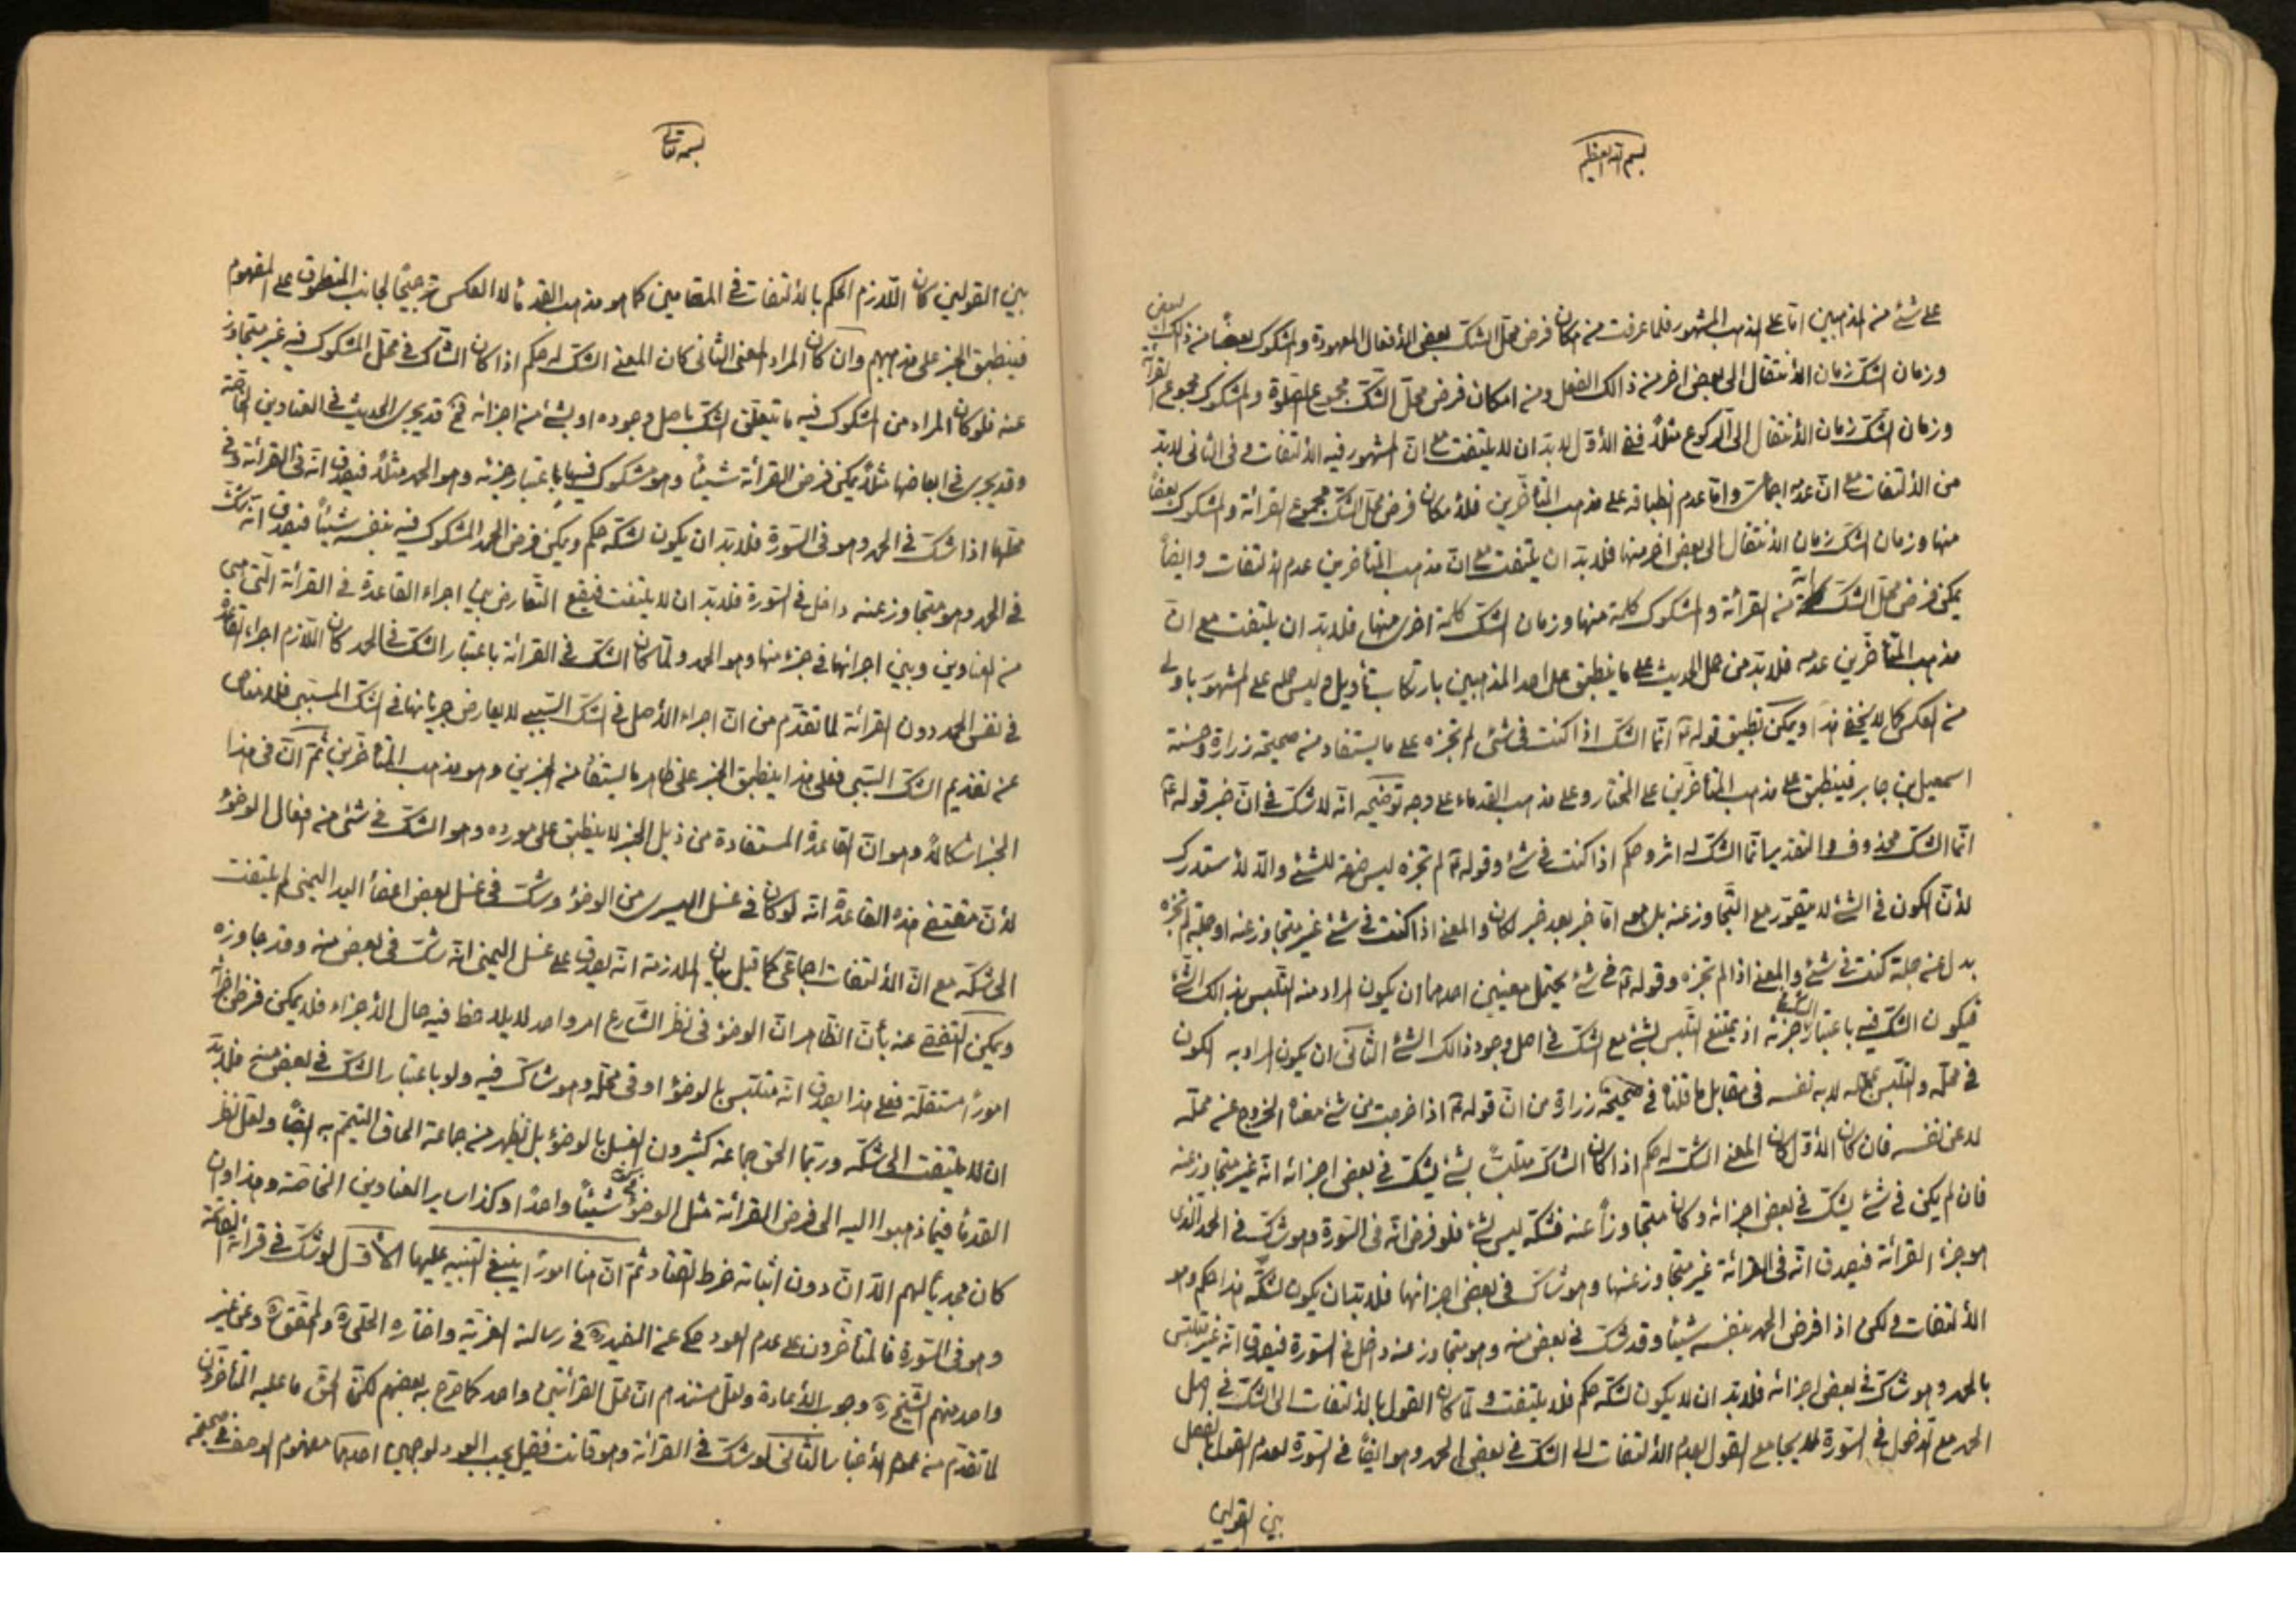 بسم الله العظيم
على شئ من المذهبين امّا على المذهب المشهور فلما عرفت من امكان فرض محلّ الشكّ بعض الأفعال المعهودة والمشكوك بعضاً من ذلك البعض
وزمان الشكّ زمان الأنتقال الى بعض اخر من ذالك الفعل ومن امكان فرض محلّ الشكّ مجموع الصّلوة والمشكوك مجموع القرائة
وزمان الشكّ زمان الأنتقال الى الرّكوع مثلاً ففى الأوّل لابدّ ان لا يلتفت مع انّ المشهور فيه الألتفات وفى الثانى لابدّ
من الألتفات مع انّ عدمه اجماعىّ وامّا عدم انطباقه على مذهب المتأخّرين فلأمكان فرض محلّ الشكّ مجموع القرائة والمشكوك بعضاً
منها وزمان الشكّ زمان الأنتقال الى بعض اخر منها فلابدّ ان يلتفت مع انّ مذهب المتأخرين عدم الألتفات وايضاً
يمكن فرض محلّ الشكّ اية من القرائة والمشكوك كلمة منها وزمان الشكّ كلمة اخرى منها فلابدّ ان يلتفت مع انّ
مذهب المتأخّرين عدمه فلابدّ من حمل الحديث على ما ينطبق على احد المذهبين بارتكاب تأويل وليس حمله على المشهور باولى
من العكس كما لا يخفى هذا ويمكن تطبيق قوله ع انّما الشكّ اذا كنت فى شئ لم تجزه على ما يستفاد من صحيحة زرارة وحسنة
اسمعيل بن جابر فينطبق على مذهب المتأخّرين على المختار وعلى مذهب القدماء على وجه توضيحه انّه لا شكّ فى انّ خبر قوله ع
انّما الشكّ محذوف والتقدير انّما الشكّ له اثر وحكم اذا كنت فى شئ وقوله ع لم تجزه ليس صفة للشئ والّا لأستدرك
لأنّ الكون فى الشئ لا يتصوّر مع التّجاوز عنه بل هو امّا خبر بعد خبر لكان والمعنى اذا كنت فى شئ غير متجاوز عنه او جملة لم تجزه
بدل عن جملة كنت فى شئ والمعنى اذا لم تجزه وقوله ع فى شئ يحتمل معنيين احدهما ان يكون المراد منه التلبّس بذالك الشّئ
فيكون الشكّ فيه باعتبار الشكّ فى جزئه اذ يمتنع التلبّس بشئ مع الشكّ فى اصل وجود ذالك الشئ الثانى ان يكون المراد به الكون
فى محلّه والتلبّس بمحلّه لا به نفسه فى مقابل ما قلناه فى صحيحة زرارة من انّ قوله ع اذا خرجت من شئ معناه الخروج عن محلّه
لا عن نفسه فان كان الأوّل كان المعنى الشكّ له حكم اذا كان الشاكّ متلبّساً بشئ يشكّ فى بعض اجزائه انّه غير متجاوز عنه
فان لم يكن فى شئ يشكّ فى بعض اجزائه وكان متجاوزاً عنه فشكّه ليس بشئ فلو فرض انّه فى السّورة وهو شكّ فى الحمد الّذى
هو جزء القرائة فيصدق انّه فى القرائة غير متجاوز عنها وهو شاكّ فى بعض اجزائها فلابدّ ان يكون لشكّه هذا حكم وهو
الألتفات ولكن اذا فرض الحمد بنفسه شيئاً وقد شكّ فى بعض منه وهو متجاوز عنه داخل فى السّورة فيصدق انّه غير متلبّس
بالحمد وهو شاكّ فى بعض اجزائه فلابدّ ان لا يكون لشكّه حكم فلا يلتفت ولمّا كان القول بالألتفات الى الشكّ فى اصل
الحمد مع الدّخول فى السّورة لا يجامع القول بعدم الألتفات الى الشكّ فى بعض الحمد وهو ايضاً فى السّورة لعدم القول بالفصل
بين القولين
بسمه تعالى
بين القولين كان اللّازم الحكم بالألتفات فى المقامين كما هو مذهب القدمأ لا العكس ترجيحاً لجانب المنطوق على المفهوم
فينطبق الخبر على مذهبهم وان كان المراد المعنى الثانى كان المعنى الشكّ له حكم اذا كان الشاكّ فى محلّ المشكوك فيه غير متجاوز
عنه فلو كان المراد من المشكوك فيه ما يتعلّق الشكّ باصل وجوده او بشئ من اجزائه فح قد يجرى الحديث فى العناوين الخاصّة
وقد يجرى فى ابعاضها مثلاً يمكن فرض القرائة شيئاً وهو مشكوك فيها باعتبار جزئه وهو الحمد مثلاً فيصدق انّه فى القرائة وفى
محلّها اذا شكّ فى الحمد وهو فى السّورة فلابدّ ان يكون لشكّه حكم ويمكن فرض الحمد المشكوك فيه بنفسه شيئاً فيصدق انّه شكّ
فى الحمد وهو متجاوز عنه داخل فى السّورة فلابدّ ان لا يلتفت فيقع التّعارض بين اجراء القاعدة فى القرائة الّتى هى
من العناوين وبين اجرائها فى جزء منها وهو الحمد ولمّا كان الشكّ فى القرائة باعتبار الشكّ فى الحمد كان اللّازم اجراء القاعدة
فى نفس الحمد دون القرائة لما تقدّم من انّ اجراء الأصل فى الشكّ السّببى لا يعارض جريانها فى الشكّ المسبّبى فلا مناص
عن تقديم الشكّ السّببى فعلى هذا ينطبق الخبر على ظاهر ما يستفاد من الخبرين وهو مذهب المتأخّرين ثمّ انّ فى هذا
الخبر اشكالاً وهو انّ القاعدة المستفادة من ذيل الخبر لا ينطبق على مورده وهو الشكّ فى شئ من افعال الوضوء
لأنّ مقتضى هذه القاعدة انّه لو كان فى غسل اليسرى من الوضوء وشكّ فى غسل بعض اعضأ اليد اليمنى لم يلتفت
الى شكّه مع انّ الألتفات اجماعىّ كما قيل بيان الملازمة انّه يصدق على غسل اليمنى انّه شكّ فى بعض منه وقد جاوزه
ويمكن التفصّى عنه بأنّ الظّاهر انّ الوضوء فى نظر الشّارع امر واحد لا يلاحظ فيه حال الأجزاء فلا يمكن فرض اجزائه
اموراً مستقلّة فعلى هذا يصدق انّه متلبّس بالوضوء او فى محلّه وهو شاكّ فيه ولو باعتبار الشكّ فى بعض منه فلابدّ
ان لا يلتفت الى شكّه وربّما الحق جماعة كثيرون الغسل بالوضوء بل يظهر من جماعة الحاق التيمّم به ايضاً ولعلّ نظر
القدمأ فيما ذهبوا اليه الى فرض القرائة مثل الوضوء شيئاً واحداً وكذا ساير العناوين الخاصّة وهذا وان
كان مجدياً لهم الّا انّ دون اثباته خرط القتاد ثمّ انّ هنا اموراً ينبغى التنبيه عليها الأوّل لو شكّ فى قرائة الفاتحة
وهو فى السّورة فالمتأخّرون على عدم العود حكى عن المفيد ره فى رسالة الغرية واختاره الحلّى ره والمحقّق ره وعن غير
واحد منهم الشّيخ ره وجوب الأعادة ولعلّ مستندهم انّ محلّ القرائتين واحد كما صرّح به بعضهم لكنّ الحقّ ما عليه المتأخّرون
لما تقدّم من عموم الأخبار الثّانى لو شكّ فى القرائة وهو قانت فقيل يجب العود لوجهين احدهما مفهوم الوصف فى صحيحة